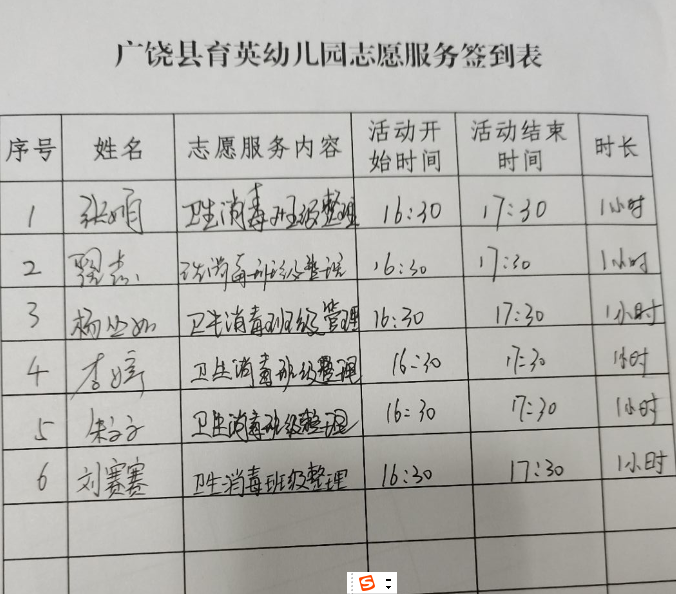 广饶县育英幼儿园志愿服务签到表
序号 姓名 志愿服务内容 活动开始时间 活动结束时间 时长
1 张娟 卫生消毒班级整理 16:30 17:30 1小时
2 卫生消毒班级整理 16:30 17:30 1小时
3 杨 卫生消毒班级管理 16:30 17:30 1小时
4 李婷 卫生消毒班级整理 16:30 17:30 1小时
5 朱子子 卫生消毒班级整理 16:30 17:30 1小时
6 刘赛赛 卫生消毒班级整理 16:30 17:30 1小时